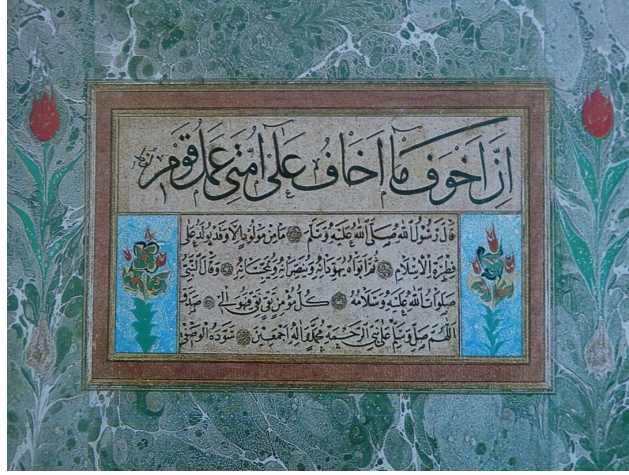 اِنَّ اَخْوَفَ مَا اَخَافُ عَلٰى اُمَّتِى عَمَلُ قَوْمِ
قَالَ رَسُولُ اللّٰهِ صَلَّى اللّٰهُ عَلَيْهِ وَسَلَّمَ مَا مِنْ مَوْلُودٍ اِلَّا وَقَدْ يُولَدُ عَلٰى
فِطْرَةِ الْاِسْلَامِ ثُمَّ اَبَوَاهُ يُهَوِّدَانِهِ وَيُنَصِّرَانِهِ وَيُمَجِّسَانِهِ وَقَالَ النَّبِىُّ
صَلَوَاتُ اللّٰهِ عَلَيْهِ وَسَلَامُهُ كُلُّ مُؤْمِنٍ تَقِىٍّ نَقِىٍّ فَهُوَ اٰلِى
اَللّٰهُمَّ صَلِّ وَسَلِّمْ عَلٰى نَبِىِّ الرَّحْمَةِ مُحَمَّدٍ وَاٰلِهِ اَجْمَعِينَ سَوَّدَهُ